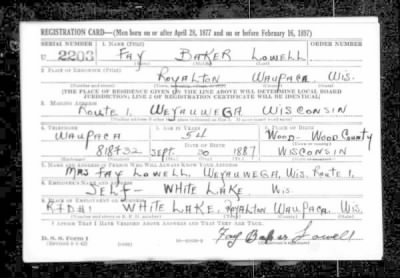 REGISTRATION CARD—(Men born on or after April 28, 1877 and on or before February 16, 1897)
SERIAL NUMBER 1. NAME (Print) ORDER NUMBER
U 2203 FAY BAKER LOWELL
2. PLACE OF RESIDENCE (Print)
ROYALTON WAUPACA WIS.
[THE PLACE OF RESIDENCE GIVEN ON THE LINE ABOVE WILL DETERMINE LOCAL BOARD
JURISDICTION; LINE 2 OF REGISTRATION CERTIFICATE WILL BE IDENTICAL]
3. MAILING ADDRESS
ROUTE 1. WEYAUWEGA WISCONSIN
4. TELEPHONE 5. AGE IN YEARS 6. PLACE OF BIRTH
WAUPACA 54 WOOD - WOOD COUNTY
DATE OF BIRTH
818F32 SEPT. 30 1887 WISCONSIN
7. NAME AND ADDRESS OF PERSON WHO WILL ALWAYS KNOW YOUR ADDRESS
MRS FAY LOWELL, WEYAUWEGA, WIS. ROUTE 1.
8. EMPLOYER'S NAME AND ADDRESS
SELF - WHITE LAKE WIS
RFD #1 WHITE LAKE. ROYALTON WAUPACA WIS.
I AFFIRM THAT I HAVE VERIFIED ABOVE ANSWERS AND THAT THEY ARE TRUE.
D. S. S. FORM 1
Fay Baker Lowell